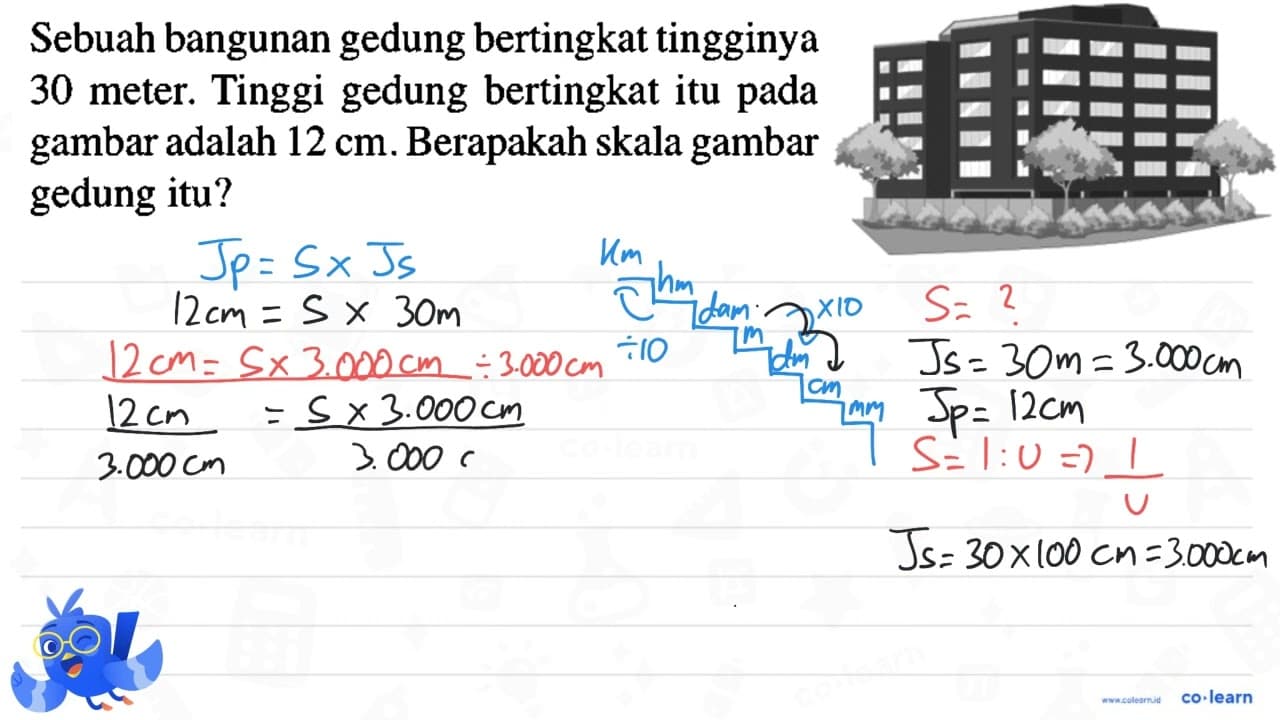 Sebuah bangunan gedung bertingkat tingginya
30 meter. Tinggi gedung bertingkat itu pada
gambar adalah 12 cm. Berapakah skala gambar
gedung itu?
Jp = S x Js
12cm = S x 30m
12cm = S x 3.000cm ÷ 3.000cm
12cm = S x 3.000cm
3.000cm 3.000 c
km
hm
dam
m
dm
cm
mm
x10
÷10
S = ?
Js = 30m = 3.000cm
Jp = 12cm
S = 1 : U => 1
U
Js = 30 x 100 cm = 3.000cm
co·learn
co·learn
co·learn
www.colearn.id co·learn